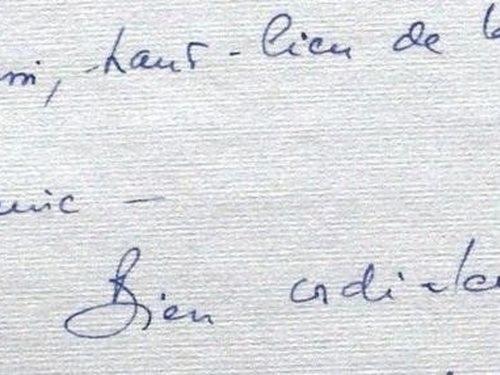 mi, haut-lieu de l
unic —
Bien cordiale